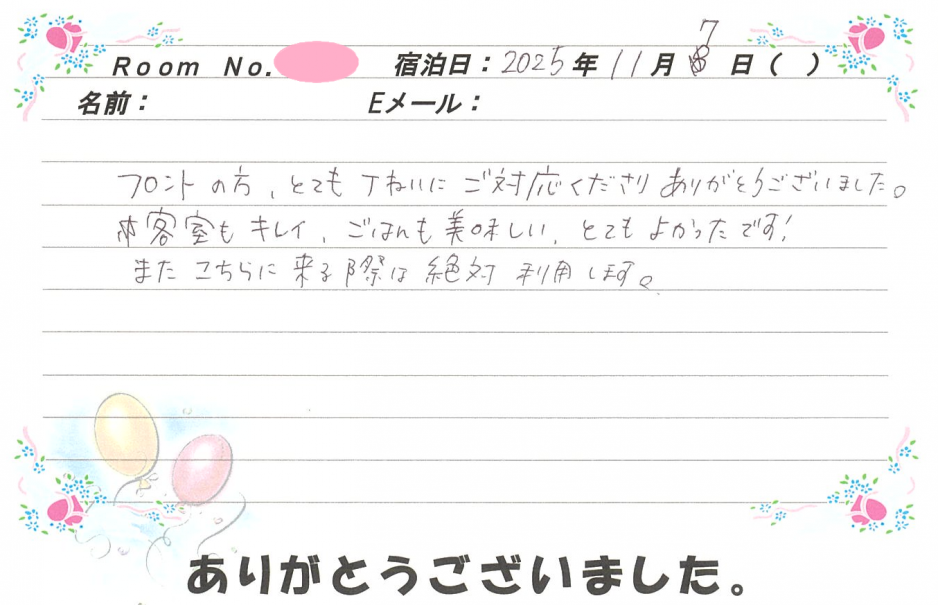 Room No. 宿泊日：2025年 11月 7日（ ）
名前： Eメール：
フロントの方、とても丁ねいにご対応くださりありがとうございました。
客室もキレイ、ごはんも美味しい、とてもよかったです！
またこちらに来る際は絶対利用します。
ありがとうございました。